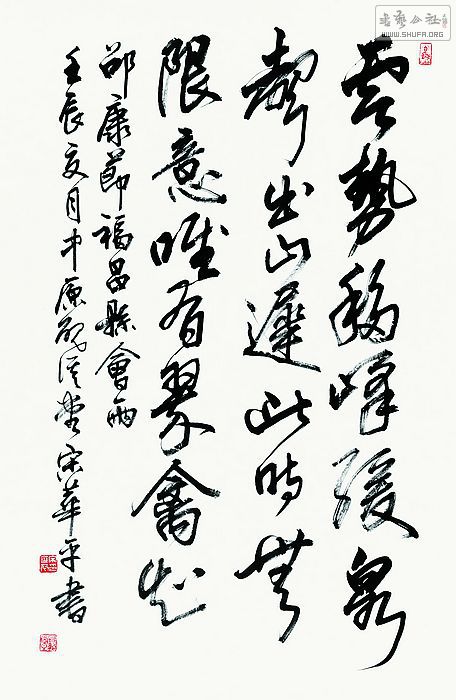 书艺公社
WWW.SHUFA.ORG
雲勢移峰緩泉
聲出山遲此時無
限意唯有翠禽知
邵康節福昌縣會雨
壬辰夏月中原堂宋華平書